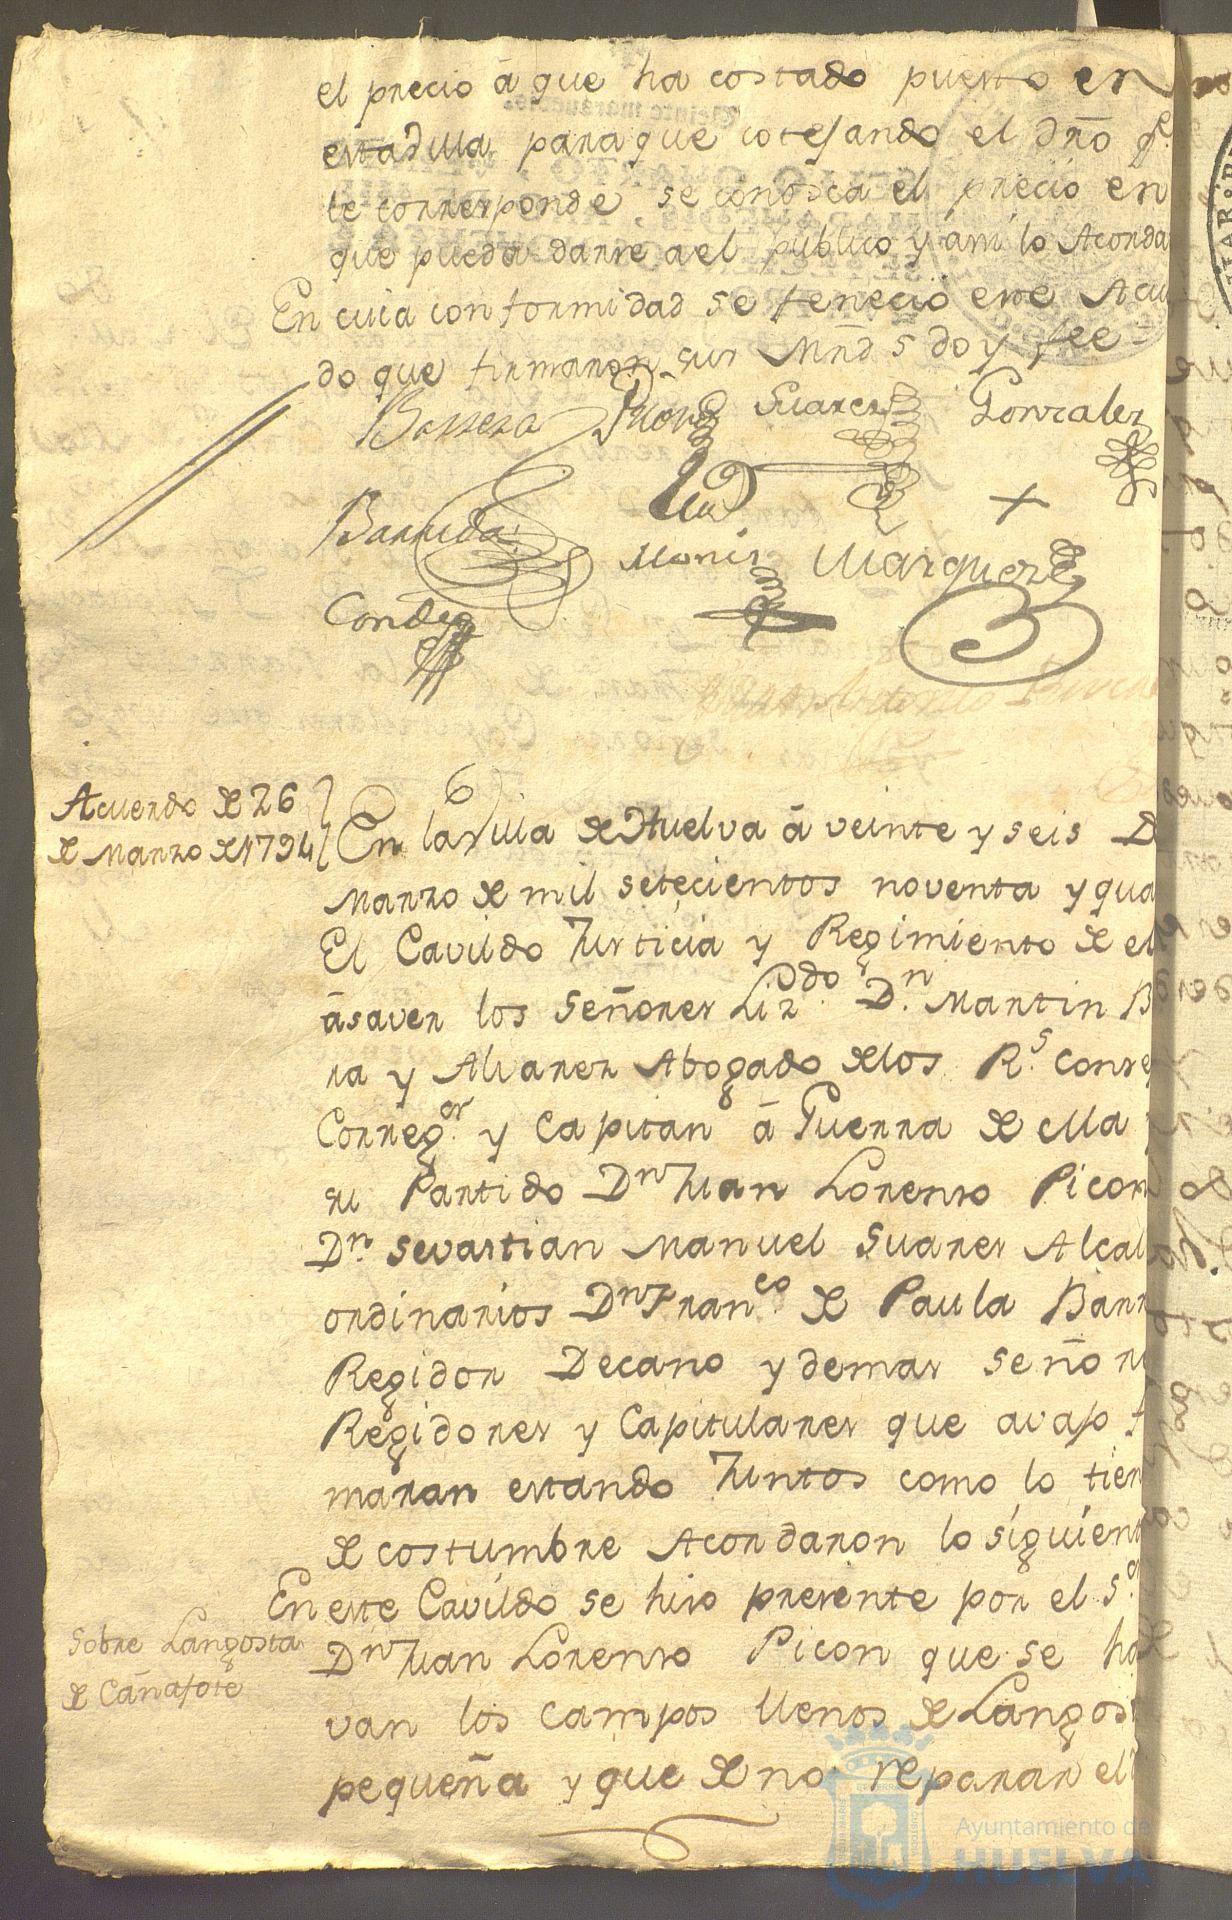 el precio á que ha costado puesto en
esta dilla para que cotejando el dr̃o q.e
le corresponde, se conosca el precio en
que pueda darse a el publico y ási lo Acorda
En cuia conformidad se fenecio este Acu
do que firmaron sus Mrds doy fee
Barrera Suarez Gonzalez
Barreda Moniz Marquez
Condes
Acuerdo de 26
de Marzo de 1794
En la Villa de Huelva á veinte y seis D
Marzo de mil setecientos noventa y qua
El Cavildo Justicia y Regimiento de el
ásaver los Señores Lizdo. Dn. Martin B
ra y Alvarez Abogado de los Rs. Conse
Correg.or y Capitan á Guerra de ella
su Partido Dn Juan Lorenso Picon
Dn. Sevastian Manuel Suarez Alcal
ordinarios Dn Franco. de Paula Barr
Regidor Decano y demas Señor
Regidores y Capitulares que avajo f
maran estando Juntos como lo tien
de costumbre Acordaron lo siguient
En este Cavildo se hiso presente por el S.or
Sobre Langosta
de Cañafote
Dn Juan Lorenso Picon que se ha
van los campos llenos de Langost
pequeña y que de no reparar el
Ayuntamiento de
HUELVA